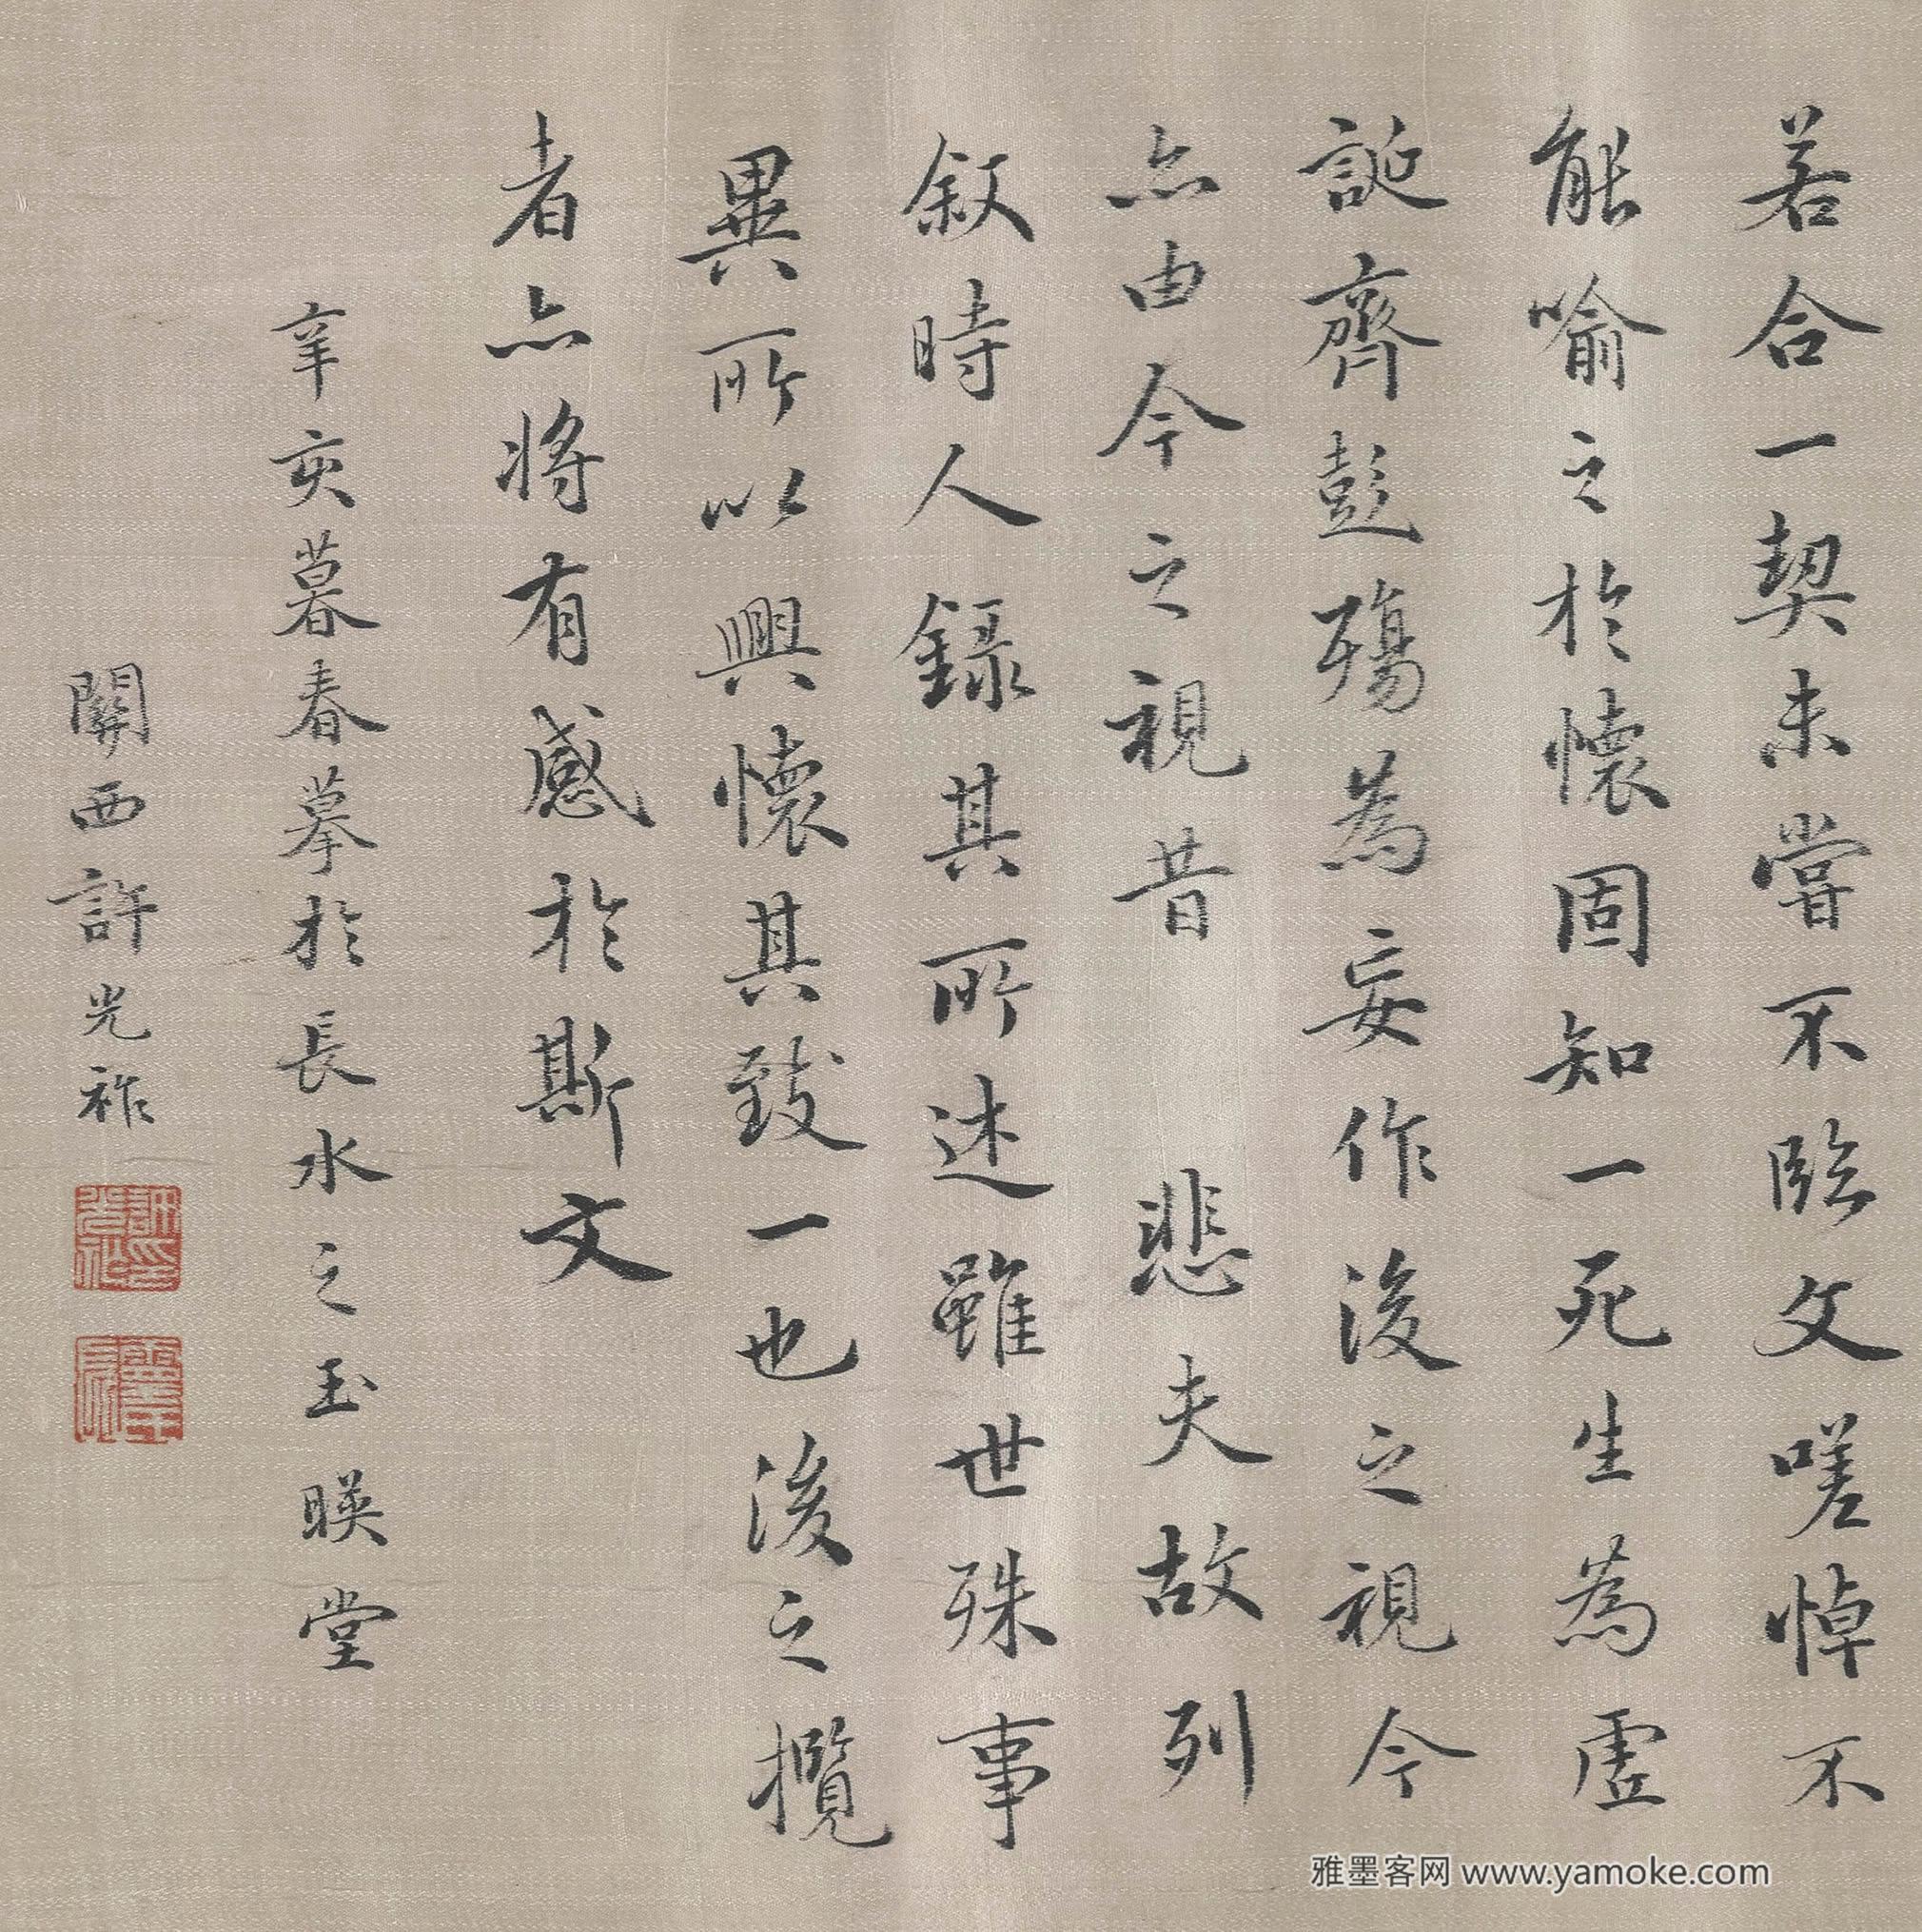 若合一契未嘗不臨文嗟悼不
能喻之於懷固知一死生為虛
誕齊彭殤為妄作後之視今
亦由今之視昔 悲夫故列
敘時人錄其所述雖世殊事
異所以興懷其致一也後之攬
者亦將有感於斯文
辛亥暮春摹於長水之玉暎堂
關西許光祚
許印光祚
雅墨客网 www.yamoke.com